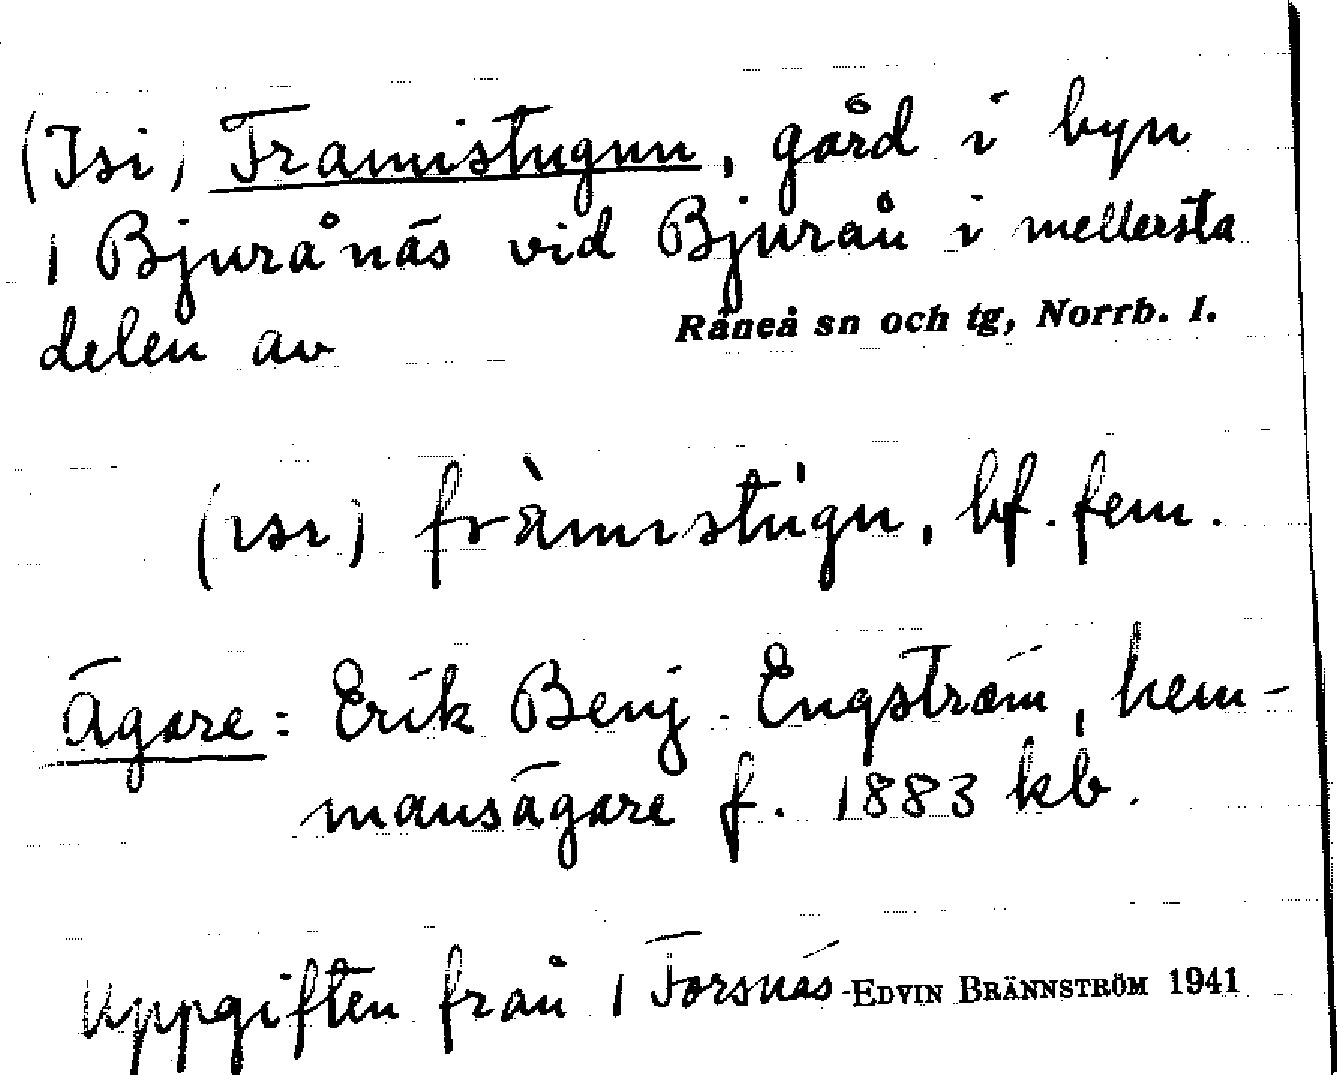 (Isi) Framistugun, gård i byn
1 Bjurånäs vid Bjurån i mellersta
delen av Råneå sn och tg, Norrb. l.
(ısı) fràmıstùgu, bf. fem.
Ägare: Erik Benj. Engström, hem-
mansägare f. 1883 kb.
Uppgiften från 1 Forsnäs - EDVIN BRÄNNSTRÖM 1941